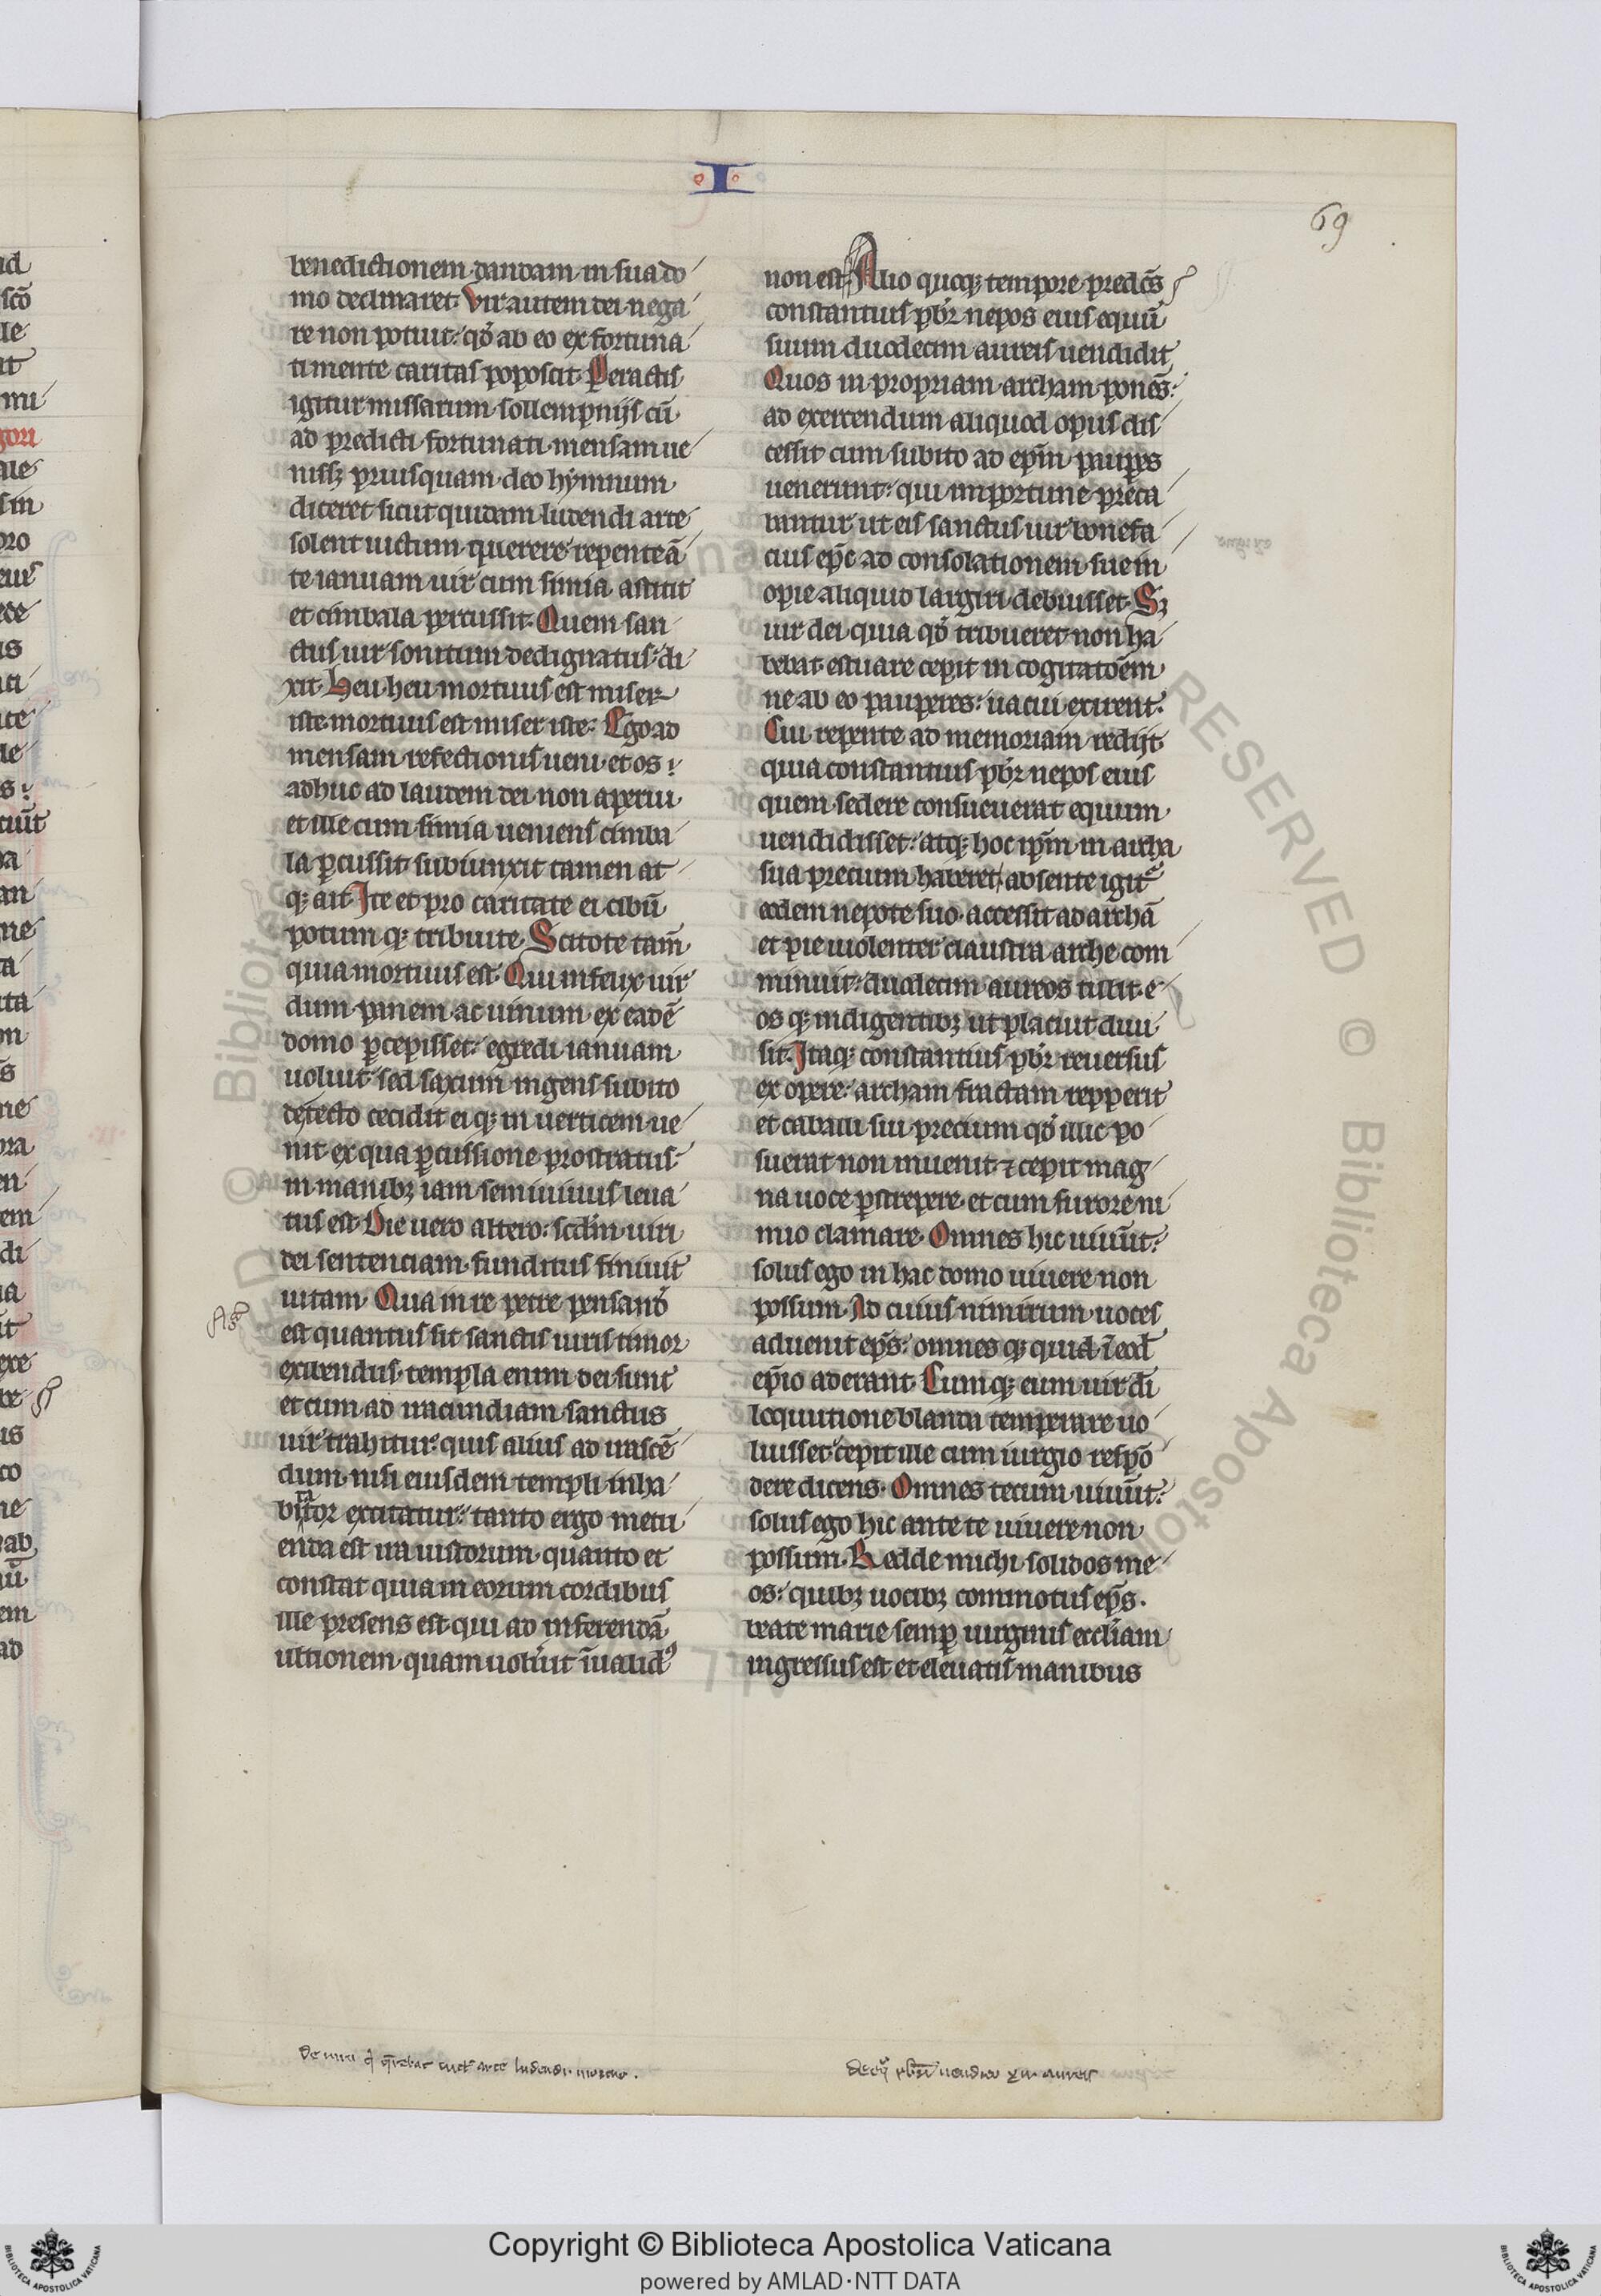 I
69
benedictionem dandam in sua do
mo declinaret. Vir autem dei nega
re non potuit: qđ ab eo ex fortuna
ti mente caritas poposcit. Peractis
igitur missarum sollempnijs cū
ad predicti fortunati mensam ue
nissꝫ priusquam deo hymnum
diceret sicut quidam ludendi arte
solent uictum querere repente ā
te ianuam uir cum simia astitit
et cimbala percussit. Quem san
ctus uir sonitum dedignatus di
xit. Heu heu mortuus est miser
iste mortuus est miser iste. Ego ad
mensam refectionis ueni et os
adhuc ad laudem dei non aperui
et ille cum simia ueniens cimba
la ꝑcussit. subiunxit tamen at
qꝫ ait. Ite et pro caritate ei cibū
potum qꝫ tribuite. Scitote tam̄
quia mortuus est. Qui infelix uir
dum panem ac uinum ex eadē
domo ꝑcepisset: egredi ianuam
uoluit sed saxum ingens subito
de tecto cecidit ei qꝫ in uerticem ue
nit ex qua ꝑcussione prostratus
in manibꝫ iam semiuiuus leua
tus est. Die uero altero: scd̄m uiri
dei sentenciam funditus finiuit
uitam. Qua in re petre pensand̄
est quantus sit sanctis uiris timor
exibendus. templa enim dei sunt
et cum ad iracundiam sanctus
uir trahitur: quis alius ad irascē
dum nisi eiusdem templi inha
bitator excitatur: tanto ergo metu
enda est ira iustorum quanto et
constat quia in eorum cordibus
ille presens est qui ad inferendā
ultionem quam uoluit īualidꝰ
non est. Alio quoqꝫ tempore predc̄s
constantius pb̄r nepos eius equū
suum duodecim aureis uendidit
Quos in propriam archam ponēs:
ad exercendum aliquod opus dis
cessit cum subito ad ep̄m pauꝑes
uenerunt: qui importune preca
bantur ut eis sanctus uir bonefa
cius ep̄c ad consolationem sue in
opie aliquid largiri debuisset. Sꝫ
uir dei quia qđ tribueret non ha
bebat estuare cepit in cogitatōem
ne ab eo pauperes: uacui exirent.
Cui repente ad memoriam redijt
quia constantius pb̄r nepos eius
quem sedere consueuerat equum
uendidisset: atqꝫ hoc ip̄m in archa
sua precium haberet, absente igit̄
eodem nepote suo accessit ad archā
et pie uiolenter claustra arche com
minuit: duodecim aureos tulit e
os qꝫ indigentibꝫ ut placuit diui
sit. Itaqꝫ constantius pb̄r reuersus
ex opere: archam fractam repperit
et caballi sui precium qđ illic po
suerat non inuenit ⁊ cepit mag
na uoce ꝑstrepere et cum furore ni
mio clamare. Omnes hic uiuūt:
solus ego in hac domo uiuere non
possum. Ad cuius nimirum uoces
aduenit ep̄s: omnes qꝫ quid ī eod̄
ep̄io aderant. Cumqꝫ eum uir dī
loquutione blanda temperare uo
luisset cepit ille cum iurgio respō
dere dicens. Omnes tecum uiuūt:
solus ego hic ante te uiuere non
possum. Redde michi solidos me
os: quibꝫ uocibꝫ commotus ep̄s.
beate marie semꝑ uirginis ecclīam
ingressus est et eleuatis manibus
Copyright © Biblioteca Apostolica Vaticana
powered by AMLAD·NTT DATA